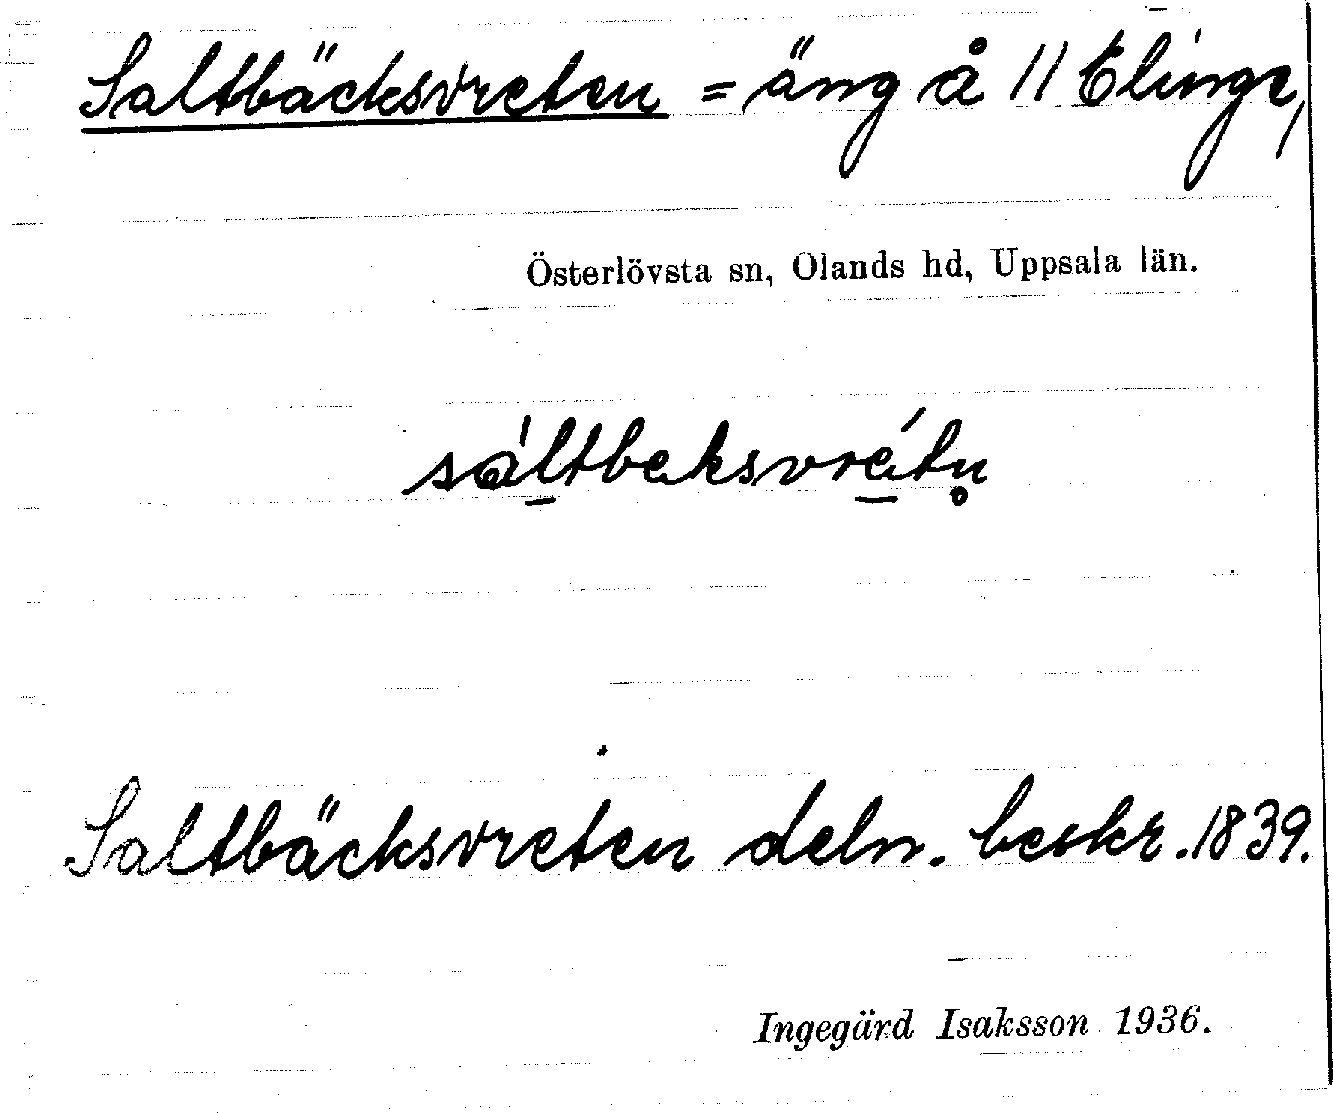 Saltbäcksvreten = äng å 11 Elinge,
Österlövsta sn, Olands hd, Uppsala län.
Saltbäcksvreten deln. beskr. 1839.
Ingegärd Isaksson 1936.